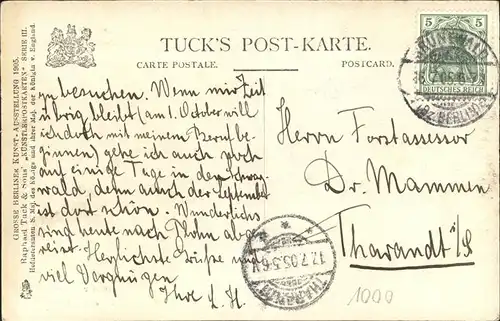 TUCK'S POST-KARTE.
CARTE POSTALE.
POSTCARD.
GROSSE BERLINER KUNST-AUSSTELLUNG 1905.
Raphael Tuck & Sons' „KÜNSTLERPOSTKARTEN" SERIE III.
Hoflieferanten S. Maj. des Königs und ihrer Maj. der Königin v. England.
zu besuchen. Wenn mir Zeit
übrig bleibt (am 1. October will
ich doch mit meinem Beruf be-
ginnen) gehe ich auch noch
auf einige Tage in den
wald, denn auch der September
ist dort schön. Wunderlichs
sind heute nach abge
reist. Herzlichste Grüße und
viel Vergnügen
Ihre L. H.
5 5
DEUTSCHES REICH
GRUNEWALD
(BZ. BERLIN)
Herrn Forstassessor
Dr. Mammen
Tharandt i/S
THARANDT
17.7.05. 5-6N
1000